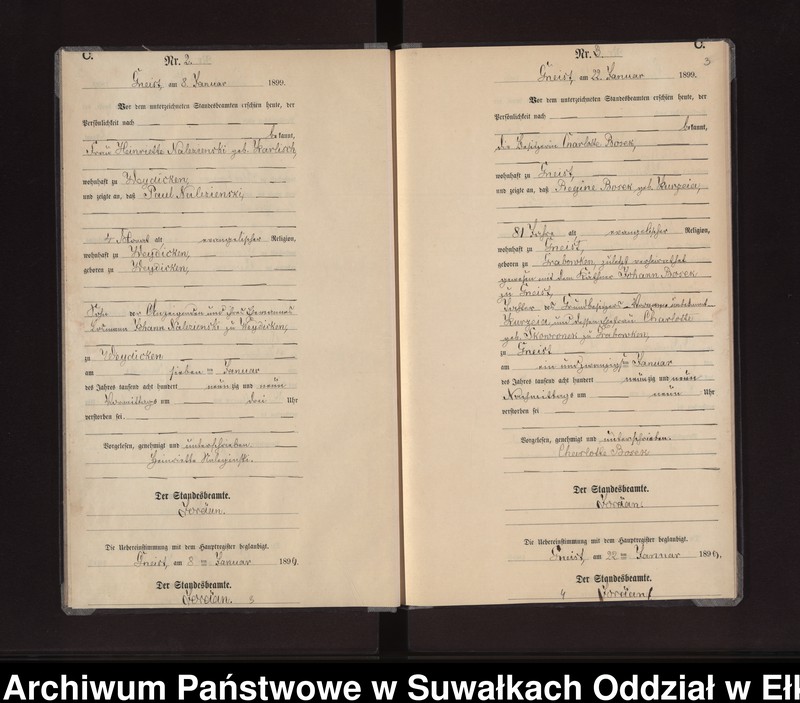 C.
Nr. 2.
Gneist, am 8. Januar 1899.
Vor dem unterzeichneten Standesbeamten erschien heute, der
Persönlichkeit nach
bekannt,
Frau Heinriette Nalezienski geb.
wohnhaft zu Weydicken,
und zeigte an, daß Paul Nalezienski,
alt evangelischer Religion,
wohnhaft zu Weydicken,
geboren zu Weydicken,
Sohn der Anzeigenden und ihres Ehemannes
Losmann Johann Nalezienski zu Weydicken,
zu Weydicken
am sieben ten Januar
des Jahres tausend acht hundert neunzig und neun
Vormittags um drei Uhr
verstorben sei.
Vorgelesen, genehmigt und unterschrieben
Heinriette
Der Standesbeamte.
Jordan.
Die Uebereinstimmung mit dem Hauptregister beglaubigt.
Gneist, am 8 ten Januar 1899.
Der Standesbeamte.
Jordan. 3
C.
3
Nr. 3.
Gneist, am 22. Januar 1899.
Vor dem unterzeichneten Standesbeamten erschien heute, der
Persönlichkeit nach
bekannt,
die Besitzerin Charlotte Borek,
wohnhaft zu Gneist,
und zeigte an, daß Regine Borek geb. Kurzeia,
81 Jahre alt evangelischer Religion,
wohnhaft zu Gneist,
geboren zu Grabowken, zuletzt verheirathet
gewesen mit dem Johann Borek
zu Gneist,
Tochter des Grundbesitzers
Kurzeia und dessen Ehefrau Charlotte
geb. Skowronek zu Grabowken,
zu Gneist
am ein und zwanzigsten Januar
des Jahres tausend acht hundert neunzig und neun
Nachmittags um neun Uhr
verstorben sei
Vorgelesen, genehmigt und unterschrieben.
Charlotte Borek
Der Standesbeamte.
Jordan.
Die Uebereinstimmung mit dem Hauptregister beglaubigt.
Gneist, am 22 ten Januar 1899.
Der Standesbeamte.
4 Jordan
Archiwum Państwowe w Suwałkach Oddział w Ełk